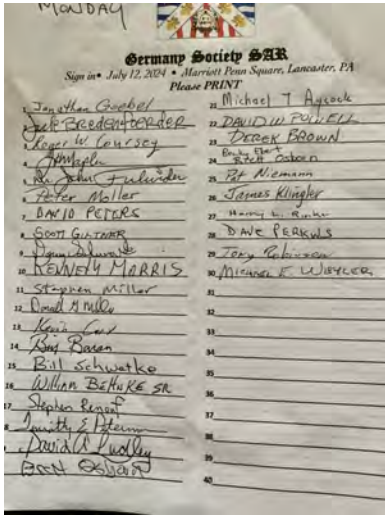 MONDAY
Germany Society SAR
Sign in • July 12, 2024 • Marriott Penn Square, Lancaster, PA
Please PRINT
1 Jonathan Goebel
Bredenfoerder
Roger W. Coursey
Dr. John Fulwider
6 Peter Moller
7 DAVID PETERS
8 SCOTT GILTNER
10 KENNETH MORRIS
11 Stephen Miller
12 Donald M
13 Kevin
14 Bing Baran
15 Bill Schwetke
16 William BEHNKE SR
17 Stephen Renouf
Timothy E Peterman
David A Ludley
BRETT Osborn
21 Michael T Aycock
22 DAVID W POWELL
23 DEREK BROWN
24 Becky Ebert
Brett Osborn
25 Pat Niemann
26 James Klingler
27 Harry L.
28 DAVE PERKINS
29 Tony Robinson
30 MICHAEL E WEYLER
31
32
33
34
35
36
37
38
39
40